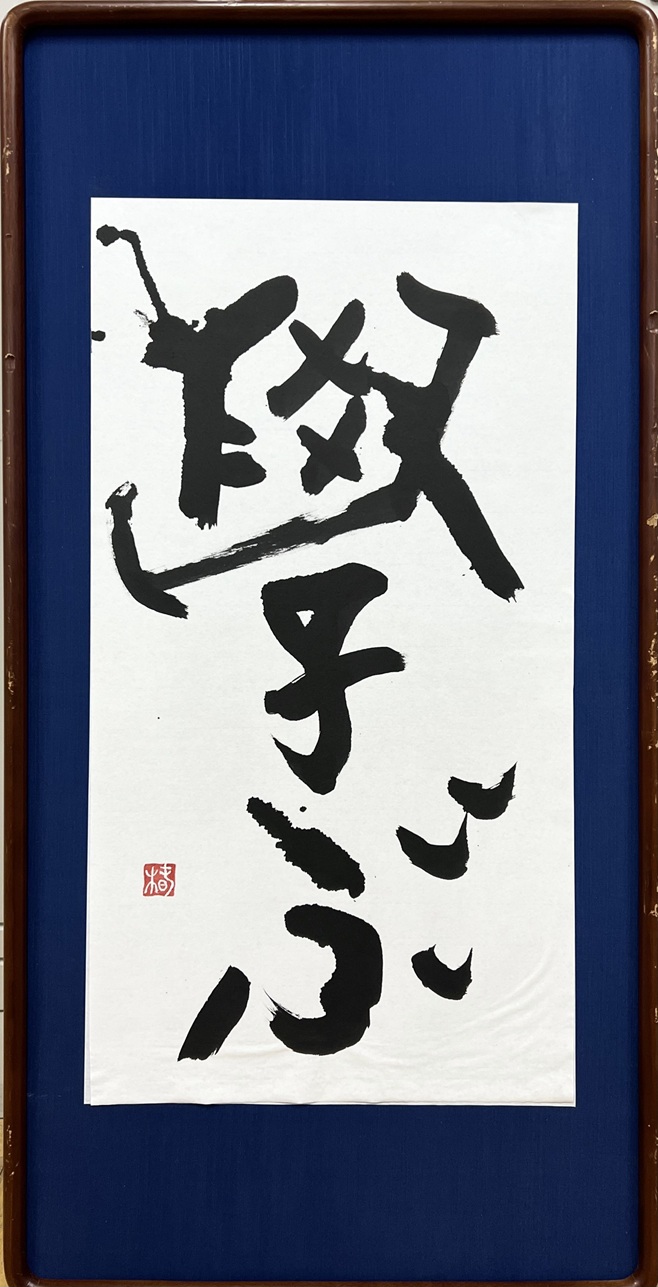 學ぶ
椿